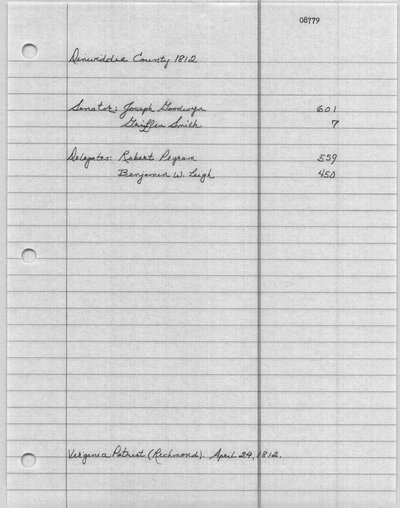 08779
Dinwiddie County 1812
Senator: Joseph Goodwyn 601
Griffin Smith 7
Delegates: Robert Pegram 559
Benjamin W. Leigh 450
Virginia Patriot (Richmond). April 24, 1812.